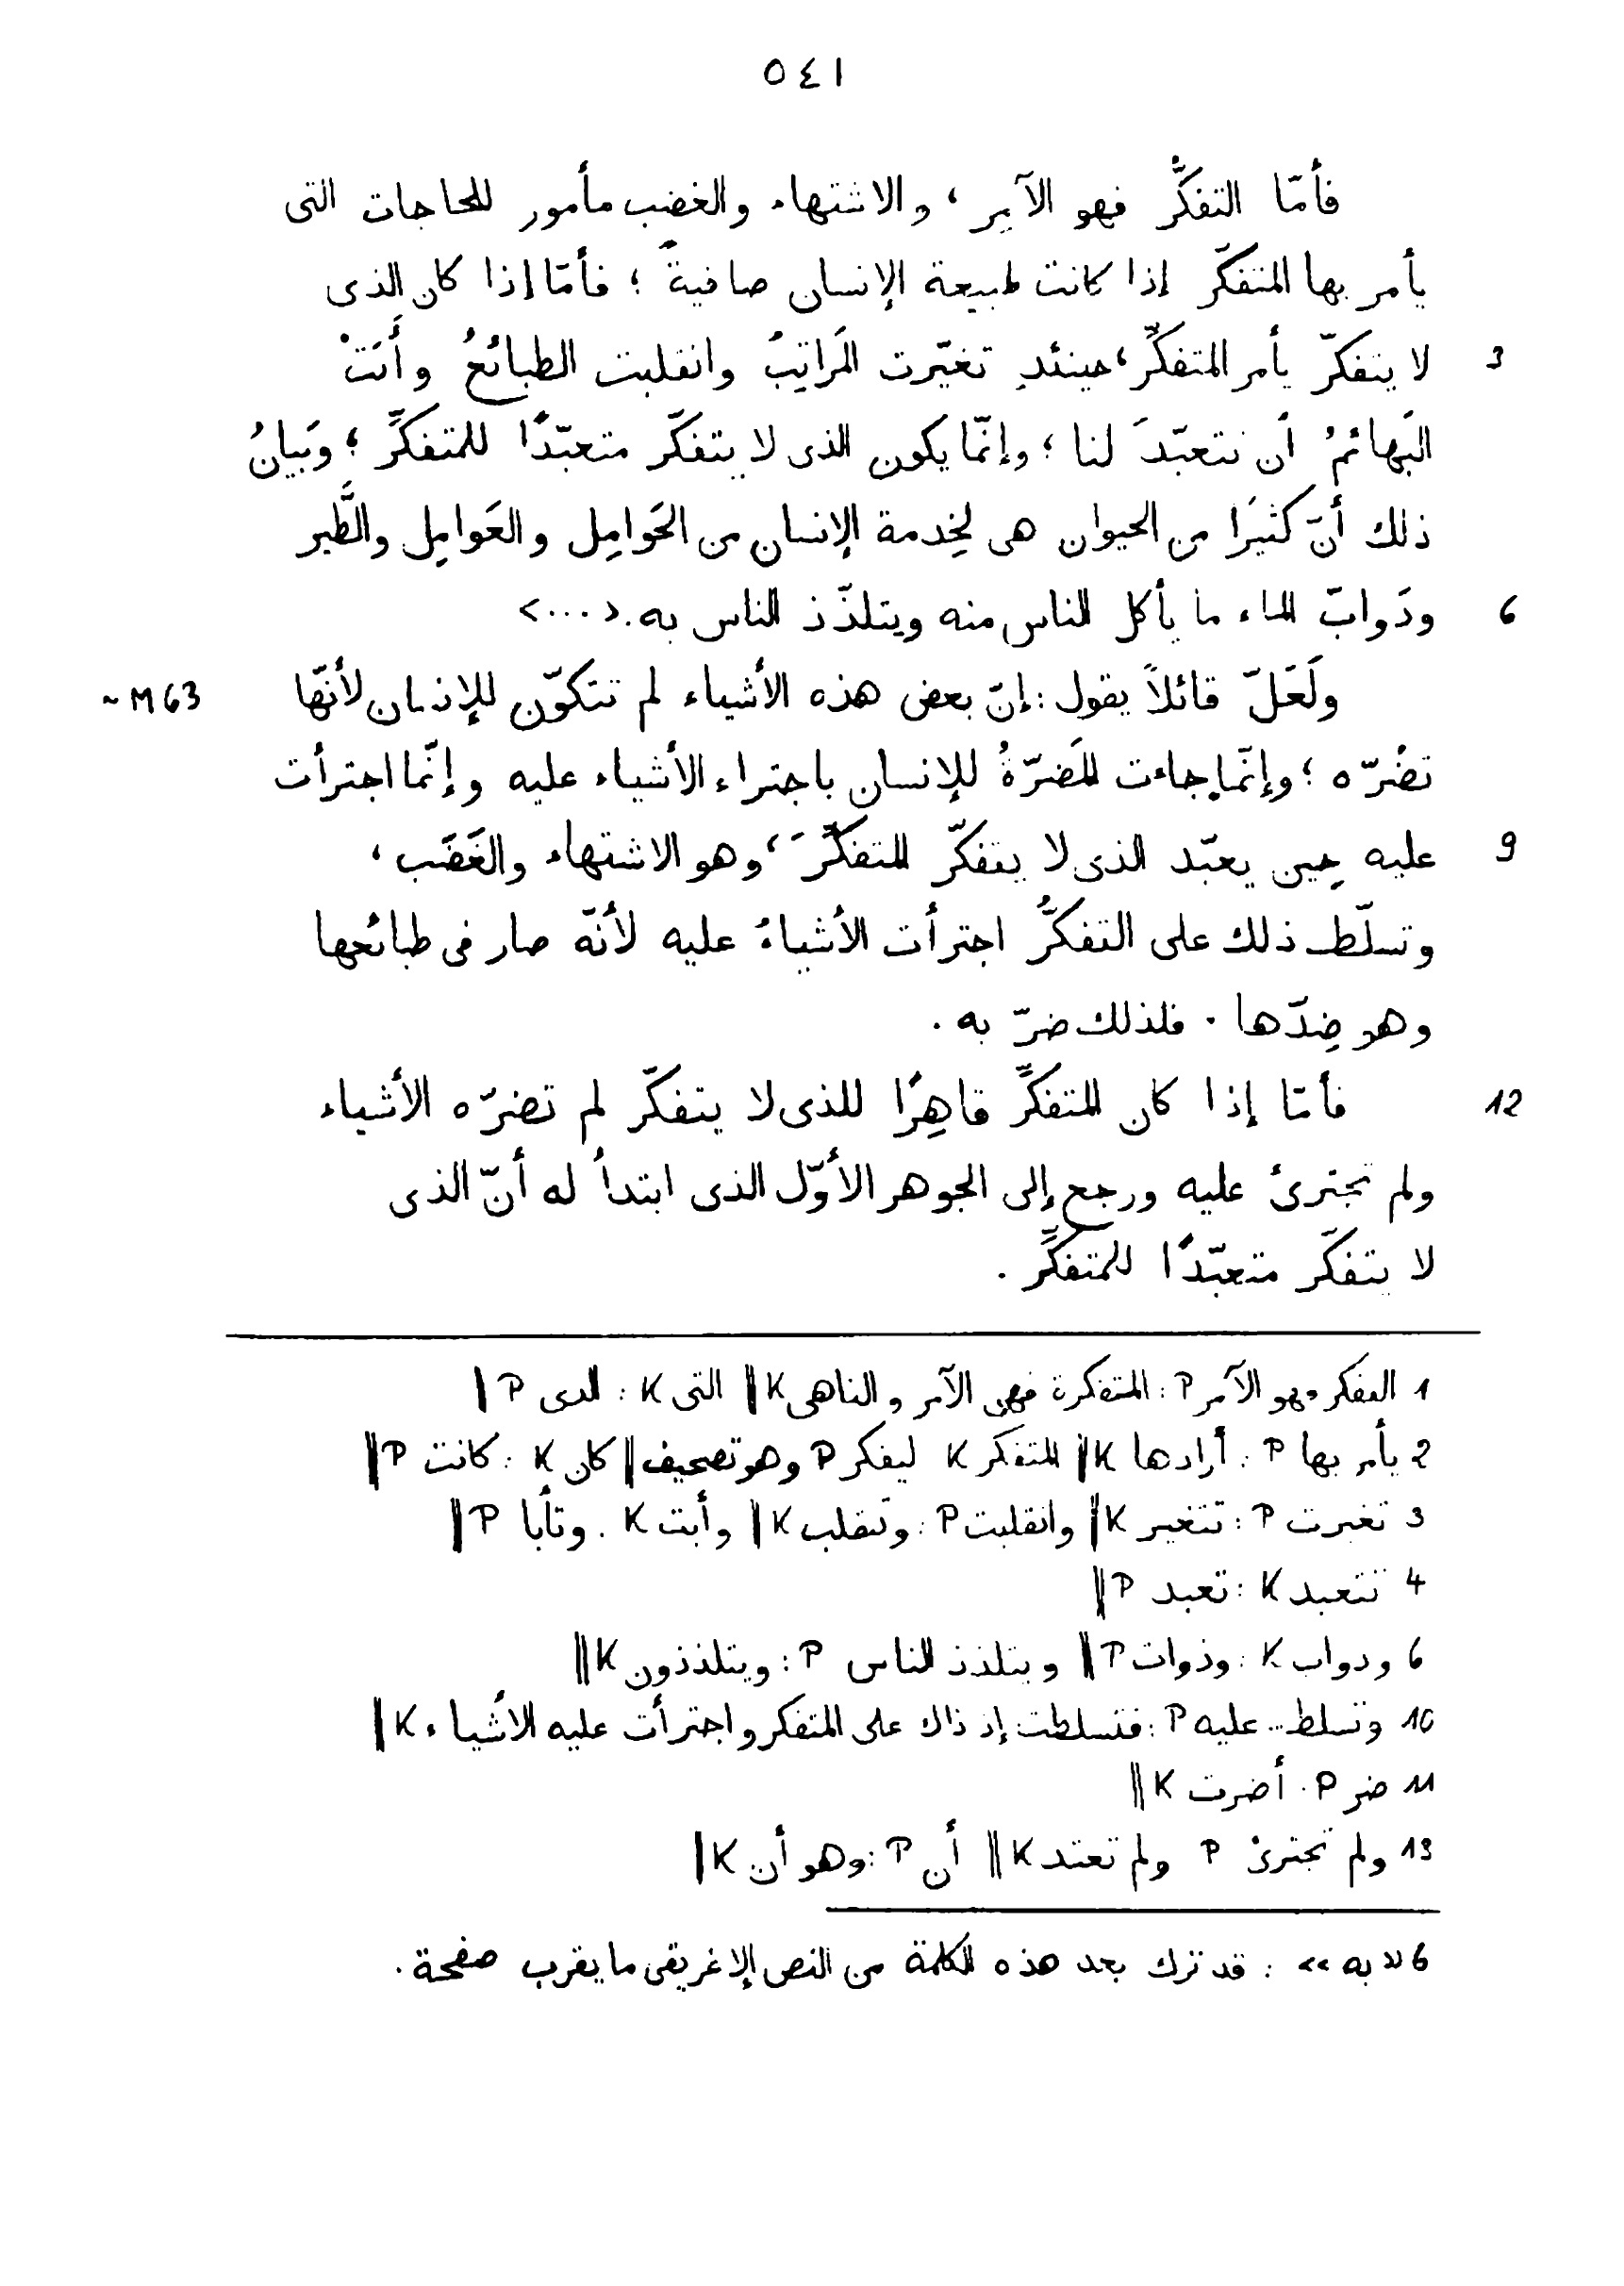 ٥٤١
فأمّا التفكّر فهو الآمِر، والاشتهاء والغضب مأمور للحاجات التى
يأمر بها المتفكّر إذا كانت طبيعة الإنسان صافيةً؛ فأمّا إذا كان الذى
3 لا يتفكّر يأمر المتفكّرَ، حينئذٍ تغيّرت المَراتِبُ وانقلبت الطبائعُ وأَبَتْ
البَهائمُ أن تتعبّدَ لنا؛ وإنّما يكون الذى لا يتفكّر متعبّدًا للمتفكّر؛ وبَيانُ
ذلك أنّ كثيرًا من الحيوان هى لخِدمة الإنسان من الحَوامِل والعَوامِل والطَّير
6 ودَوابّ الماء ما يأكل الناس منه ويتلذّذ الناس به. <...>
~ M 63 ولَعَلّ قائلاً يقول: إنّ بعض هذه الأشياء لم تتكوّن للإنسان لأنّها
تضُرّه؛ وإنّما جاءت المَضَرّةُ للإنسان باجتراء الأشياء عليه وإنّما اجترأت
9 عليه حِين يعبّد الذى لا يتفكّر المتفكّرَ، وهو الاشتهاء والغَضَب،
وتسلّط ذلك على التفكّرُ اجترأت الأشياءُ عليه لأنّه صار فى طبائعها
وهو ضِدّها. فلذلك ضرّ به.
12 فأمّا إذا كان المتفكّر قاهِرًا للذى لا يتفكّر لم تضرّه الأشياء
ولم تجترئ عليه ورجع إلى الجوهر الأوّل الذى ابتدأ له أنّ الذى
لا يتفكّر متعبّدًا للمتفكّر.
1 المفكر وهو الآمر P: المتفكرة فهى الآمر والناهى K ‖ التى K: الدى P ‖
2 يأمر بها P: أرادها K ‖ المتفكر K ليفكر P وهو تصحيف ‖ كان K: كانت P ‖
3 تغيرت P: تتغير K ‖ وانقلبت P: وتنقلب K ‖ وأبت K. وتأبا P ‖
4 تتعبد K: تعبد P ‖
6 ودواب K: وذوات P ‖ ويتلذذ الناس P: ويتلذذون K ‖
10 وتسلط.. عليه P: فتسلطت إذ ذاك على المتفكر واجترأت عليه الأشياء K ‖
11 ضر P. أضرت K ‖
13 ولم تجترئ P ولم تعتد K ‖ أن P: وهو أن K ‖
6 «به»: قد ترك بعد هذه الكلمة من النص الإغريقى ما يقرب صفحة.